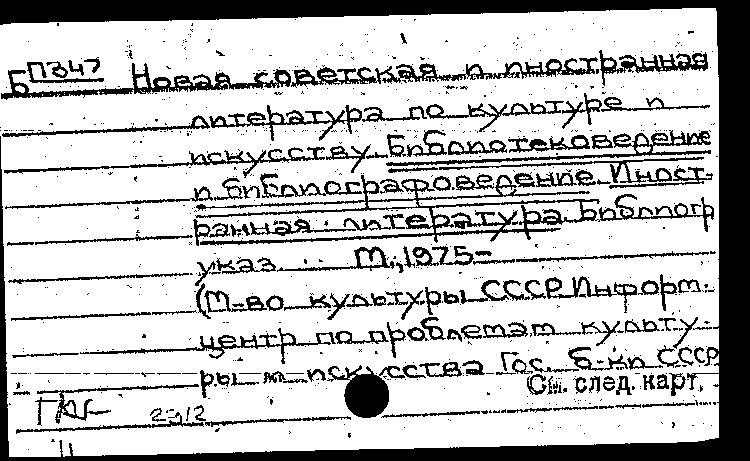 Б П347 Новая советская и иностранная
литература по культуре и
искусству. Библиотековедение
и библиографоведение. Иност-
ранная литература. Библиогр
указ. М., 1975-
(М-во культуры СССР Информ.
центр по проблемам культу-
ры и искусства Гос. б-ки СССР
См. след. карт.